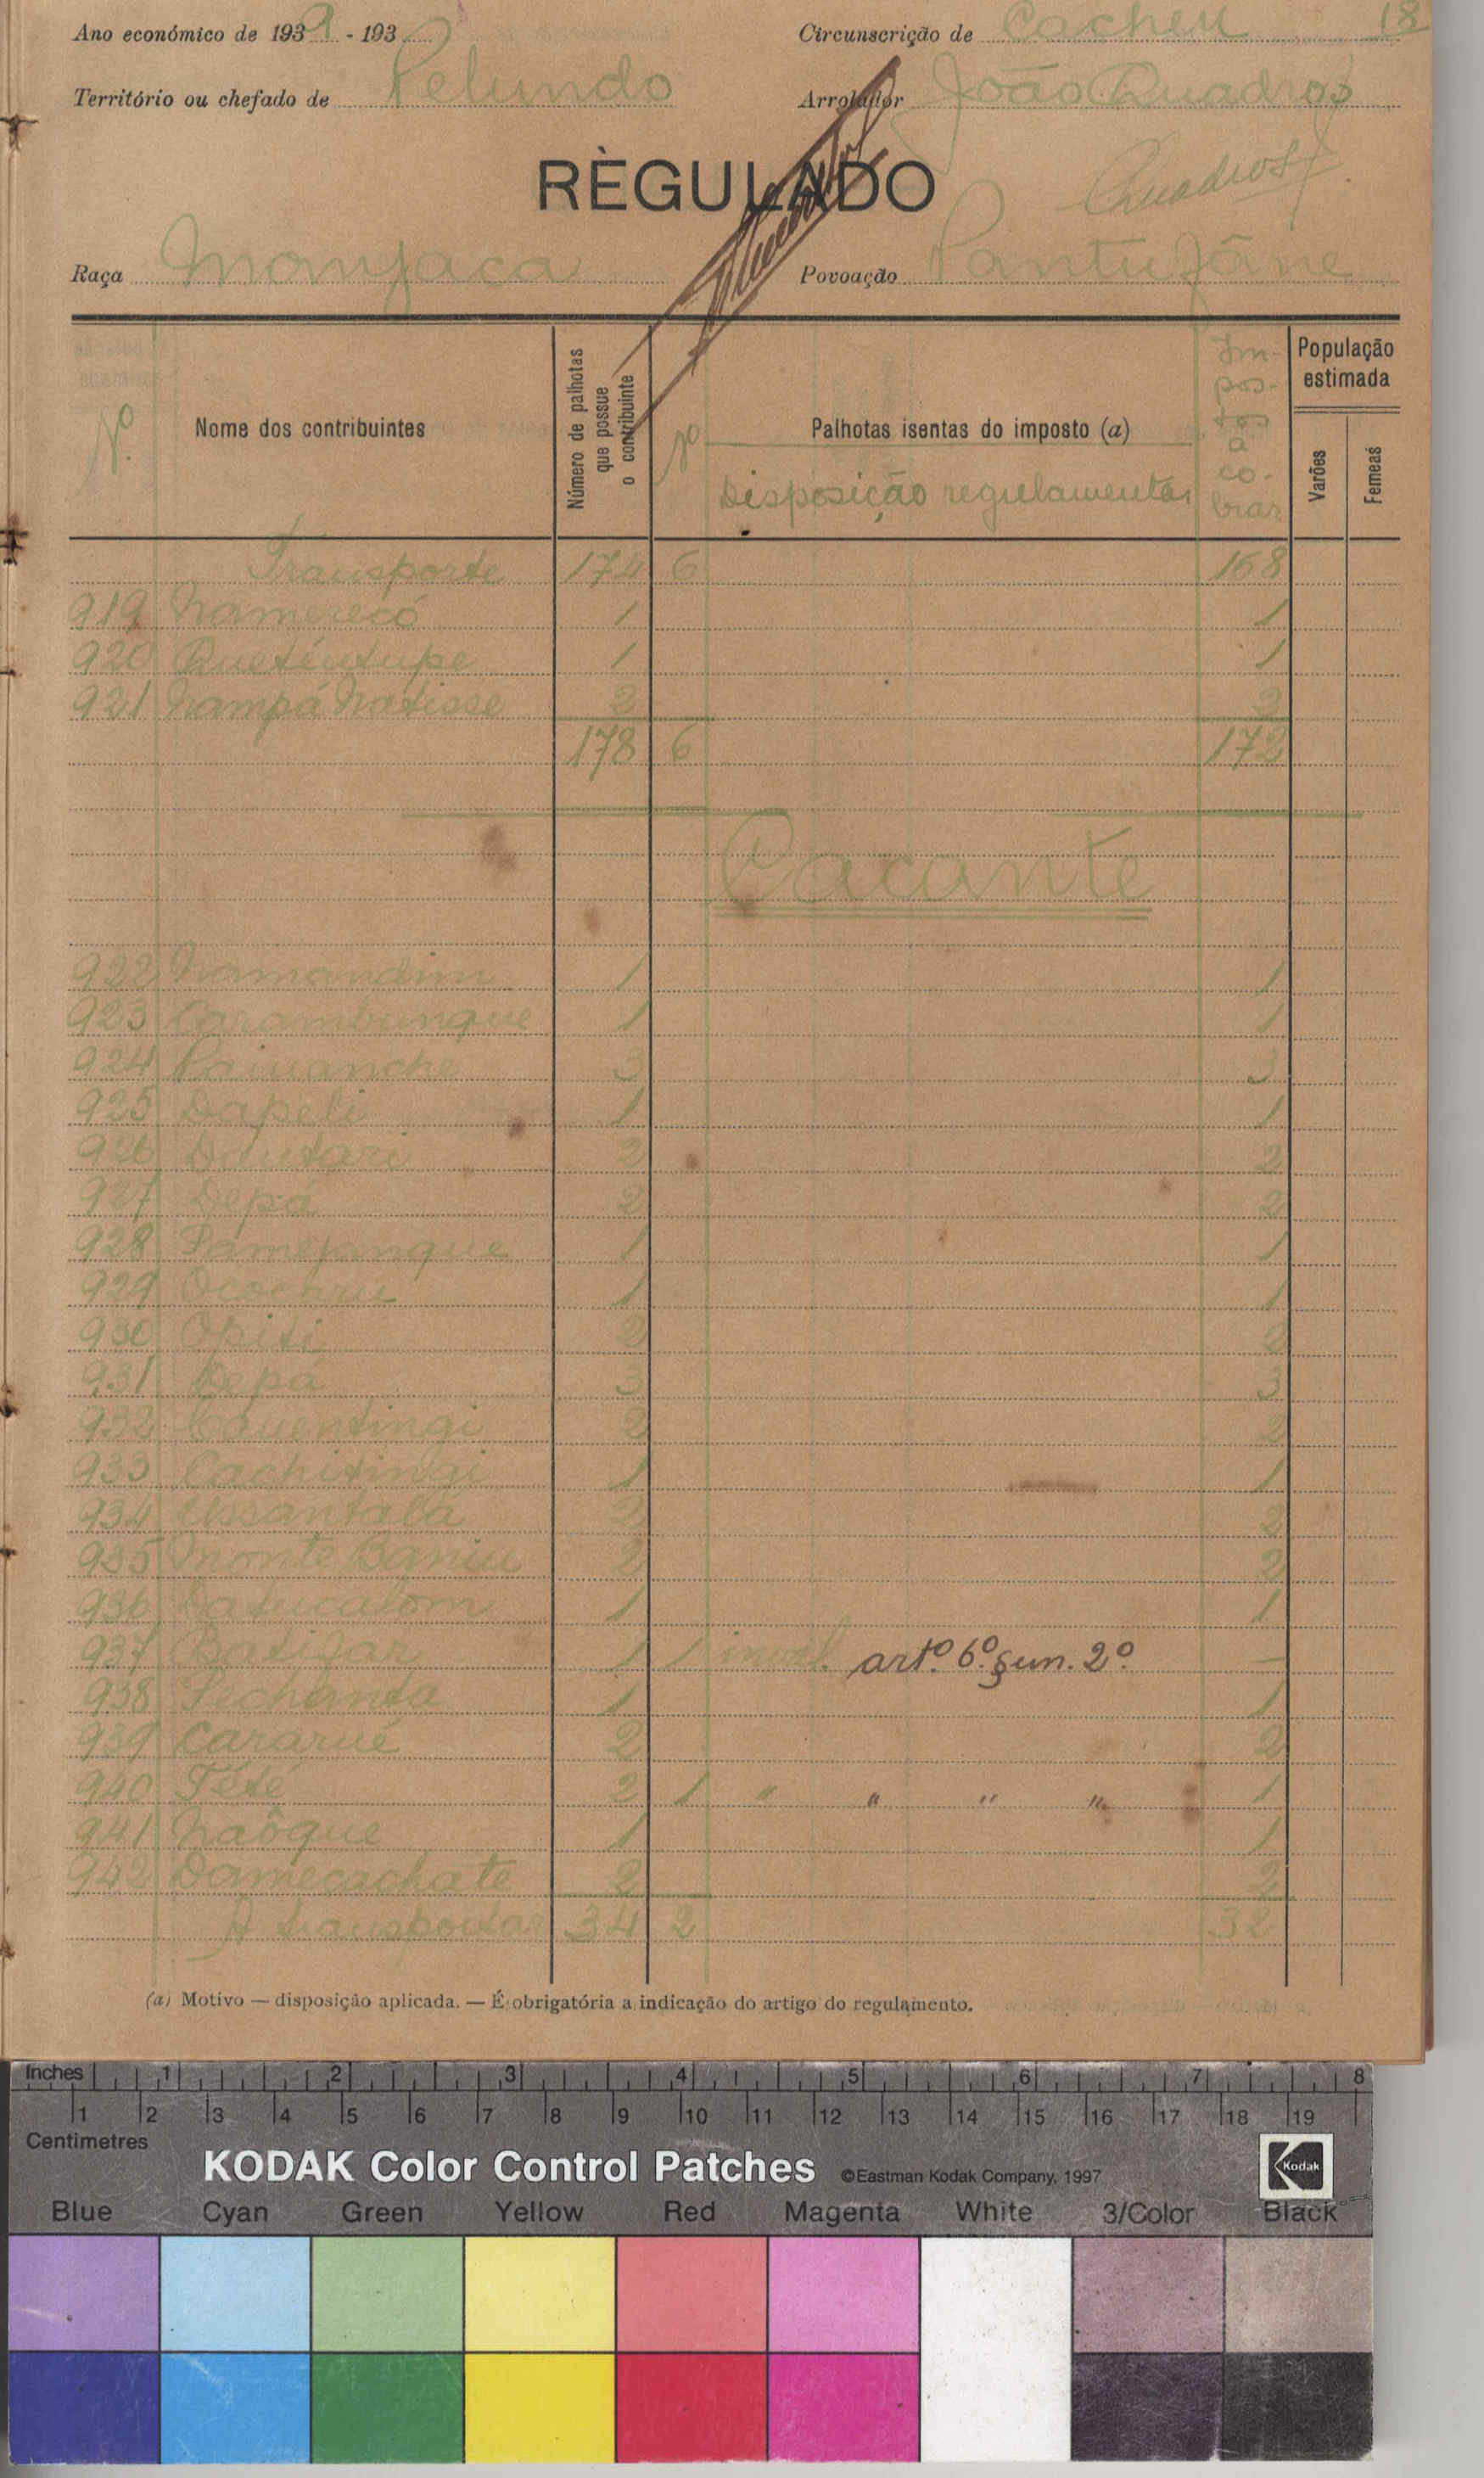 18
Ano económico de 1939 - 193
Circunscrição de Cacheu
Território ou chefado de Pelundo
Arrolador João Quadros
RÈGULADO
Quadros
Raça Manjaca
Povoação Pantufâne
Nº
Nome dos contribuintes
Número de palhotas que possue o contribuinte
Nº
Palhotas isentas do imposto (a)
Disposição regulamentar
Impostos a cobrar
População estimada
Varões
Femeas
Transporte 174 6 168
919 Namerecó 1 1
920 Quetêntupe 1 1
921 Nampá Natisse 2 2
178 6 172
Cacante
922 Namandim 1 1
923 Carambunque 1 1
924 3 3
925 Dapeli 1 1
926 Dautari 2 2
927 Depá 2 2
928 1 1
929 1 1
930 Opiti 2 2
931 Depá 3 3
932 Cauentingi 2 2
933 Cachitingi 1 1
934 Ussantalá 2 2
935 Monte Baniu 2 2
936 Datucalom 1 1
937 1 1 inval. artº. 6º. § un. 2º. —
938 1 1
939 Cararué 2 2
940 Tété 2 1 " " " " 1
941 Naôque 1 1
942 Damecachate 2 2
A transportar 34 2 32
(a) Motivo — disposição aplicada. — É obrigatória a indicação do artigo do regulamento.
Inches 1 2 3 4 5 6 7 8
1 2 3 4 5 6 7 8 9 10 11 12 13 14 15 16 17 18 19
Centimetres
KODAK Color Control Patches ©Eastman Kodak Company, 1997 Kodak
Blue Cyan Green Yellow Red Magenta White 3/Color Black